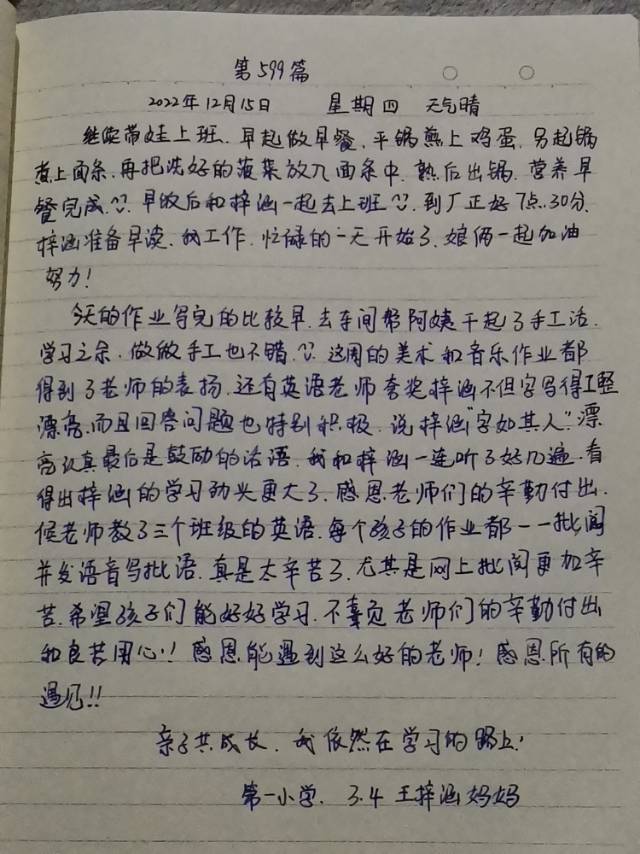 第599篇
2022年12月15日 星期四 天气晴
继续带娃上班.早起做早餐.平锅煎上鸡蛋.另起锅
煮上面条.再把洗好的菠菜放入面条中.熟后出锅.营养早
餐完成.早饭后和梓涵一起去上班.到厂正好7点.30分.
梓涵准备早读.我工作.忙碌的一天开始了.娘俩一起加油
努力!
今天的作业写完的比较早.去车间帮阿姨干起了手工活.
学习之余.做做手工也不错.这周的美术和音乐作业都
得到了老师的表扬.还有英语老师夸奖梓涵不但字写得工整
漂亮.而且回答问题也特别积极.说梓涵"字如其人".漂
亮认真最后是鼓励的话语.我和梓涵一连听了好几遍.看
得出梓涵的学习劲头更大了.感恩老师们的辛勤付出.
候老师教了三个班级的英语.每个孩子的作业都一一批阅
并发语音写批语.真是太辛苦了.尤其是网上批阅更加辛
苦.希望孩子们能好好学习.不辜负老师们的辛勤付出
和良苦用心!感恩能遇到这么好的老师!感恩所有的
遇见!!
亲子共成长.我依然在学习的路上!
第一小学.3.4王梓涵妈妈